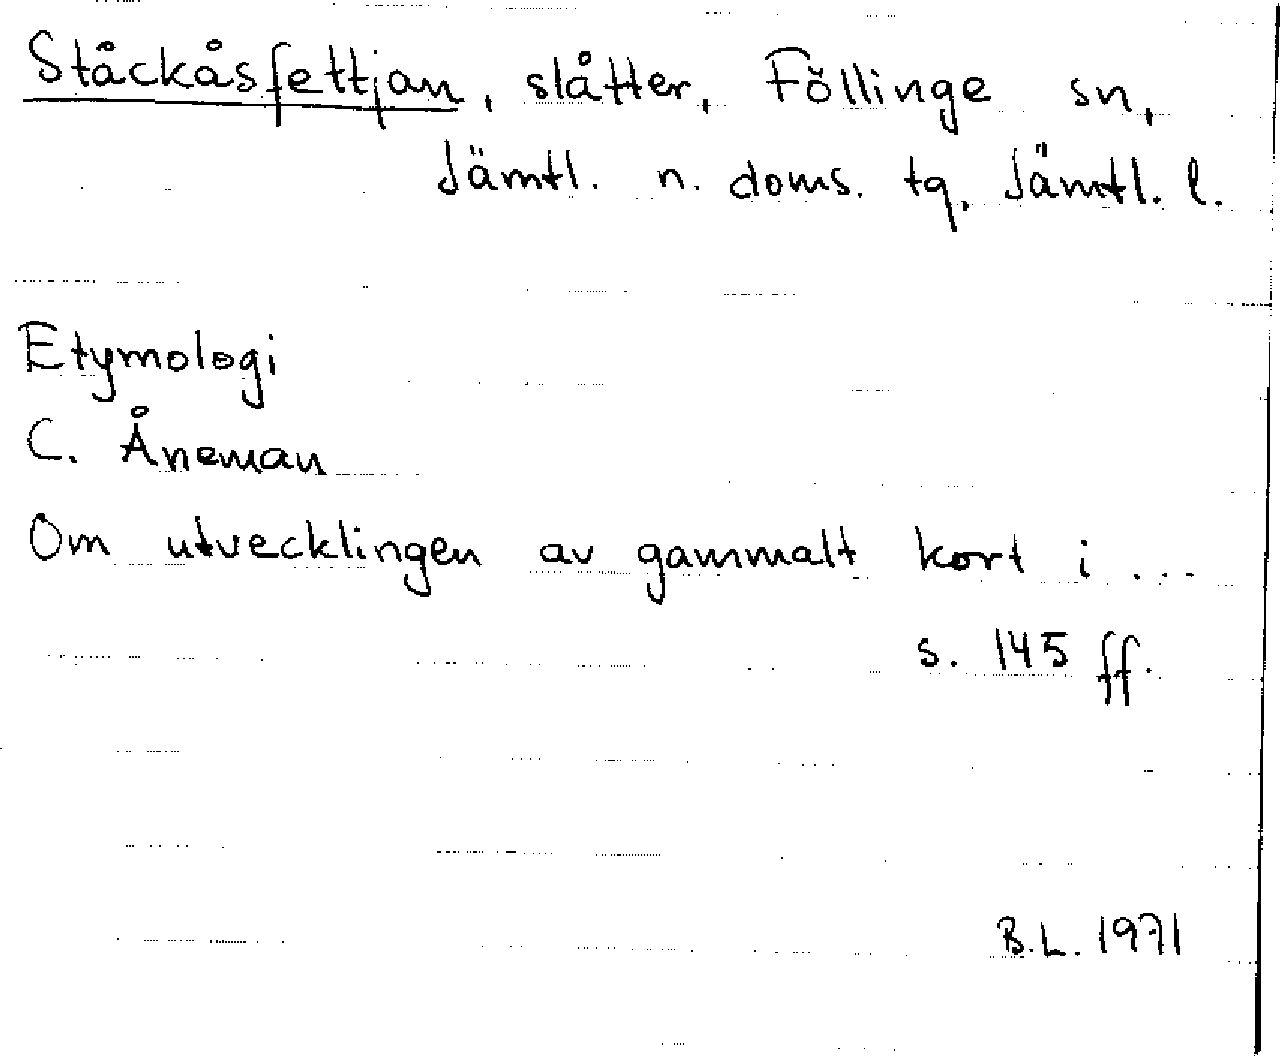 Ståckåsfettjan, slåtter, Föllinge sn,
Jämtl. n. doms. tg, Jämtl. l.
Etymologi
C. Åneman
Om utvecklingen av gammalt kort i ...
s. 145 ff.
B.L. 1971